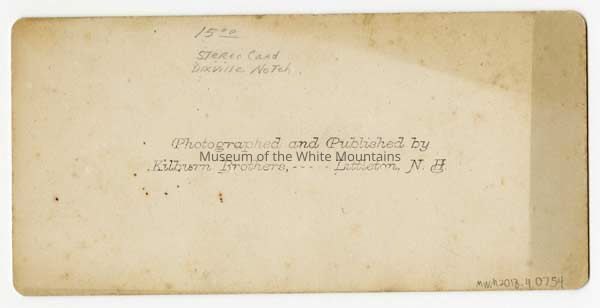 15.00
Stereo Card
Dixville Notch
Photographed and Published by
Museum of the White Mountains
Kilburn Brothers, ----- Littleton, N. H.
MWM2013.4.0754